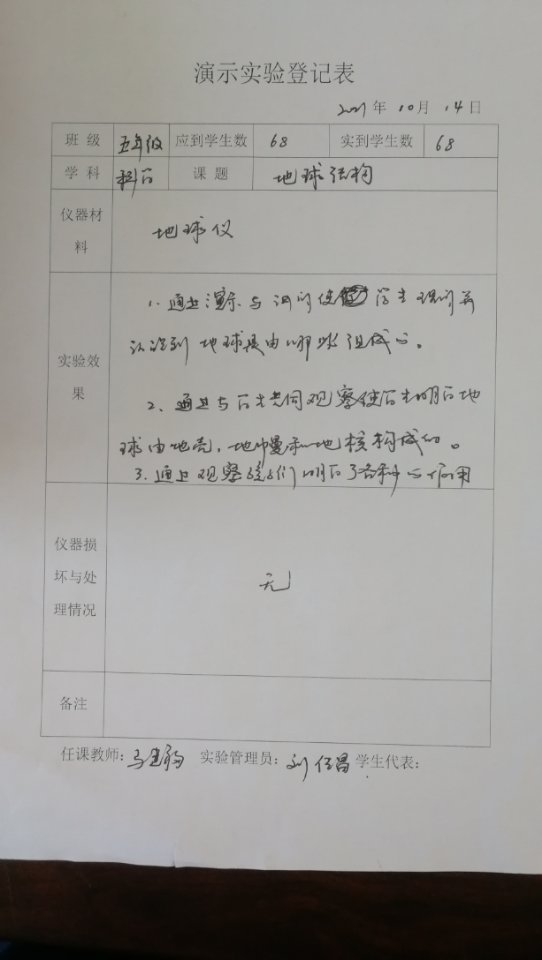 演示实验登记表
2021年 10月 14日
班级 五年级 应到学生数 68 实到学生数 68
学科 科学 课题 地球结构
仪器材料 地球仪
1. 通过演示与 使 学生 并
认识到地球是由哪 组成的。
实验效果
2、通过与 共同观察使 明白地
球由地壳、地幔和地核构成的。
3. 通过观察 们明白了各种的作用
仪器损坏与处理情况 无
备注
任课教师: 马 实验管理员: 刘 昌 学生代表: